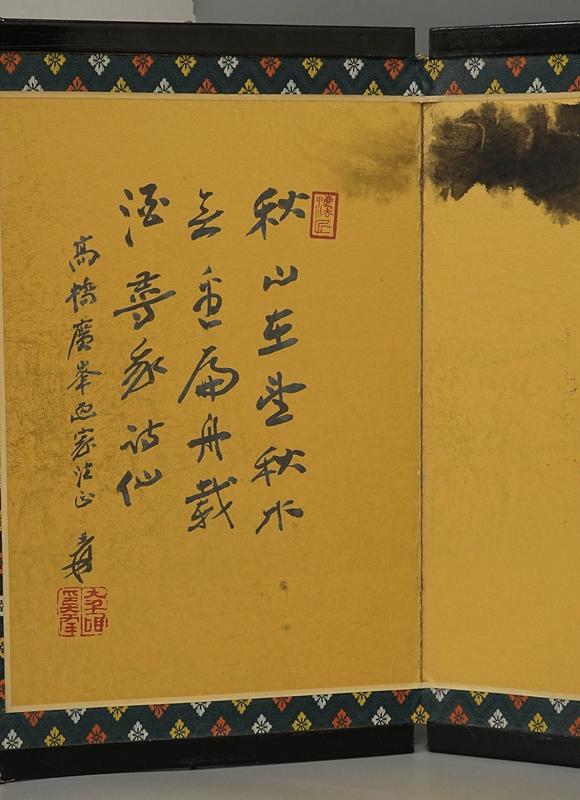 秋山在望秋水
無扁舟載
酒尋我詩仙
高橋廣峯画家法正 爰